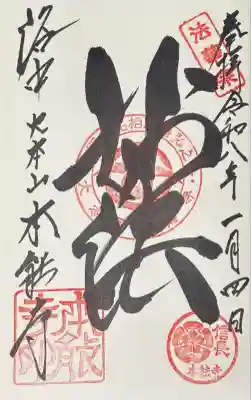 奉拝 令和八年一月四日
妙法
洛中 大本山 本能寺
法華宗
信長
本能寺
本能寺